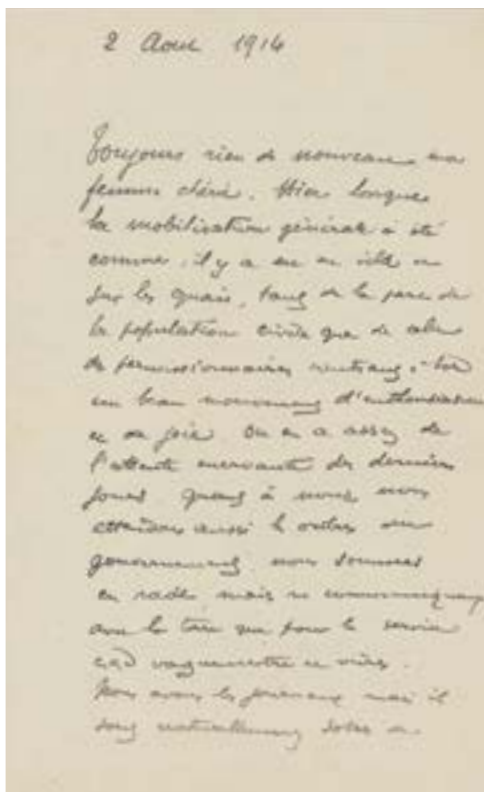 2 Aout 1914
Toujours rien de nouveau ma
femme chérie. Hier lorsque
la mobilisation générale a été
connue, il y a eu en ville et
sur les quais, tant de la part de
la population civile que de celle
de permissionnaires rentrant à bord
un beau mouvement d'enthousiasme
et de joie. On en a assez de
l'attente énervante des derniers
jours. Quant à nous nous
attendons aussi les ordres du
gouvernement, nous sommes
en rade mais ne communiquons
avec la terre que pour le service
càd vaguemestre et vivres.
Nous avons les journaux mais ils
sont naturellement sobres